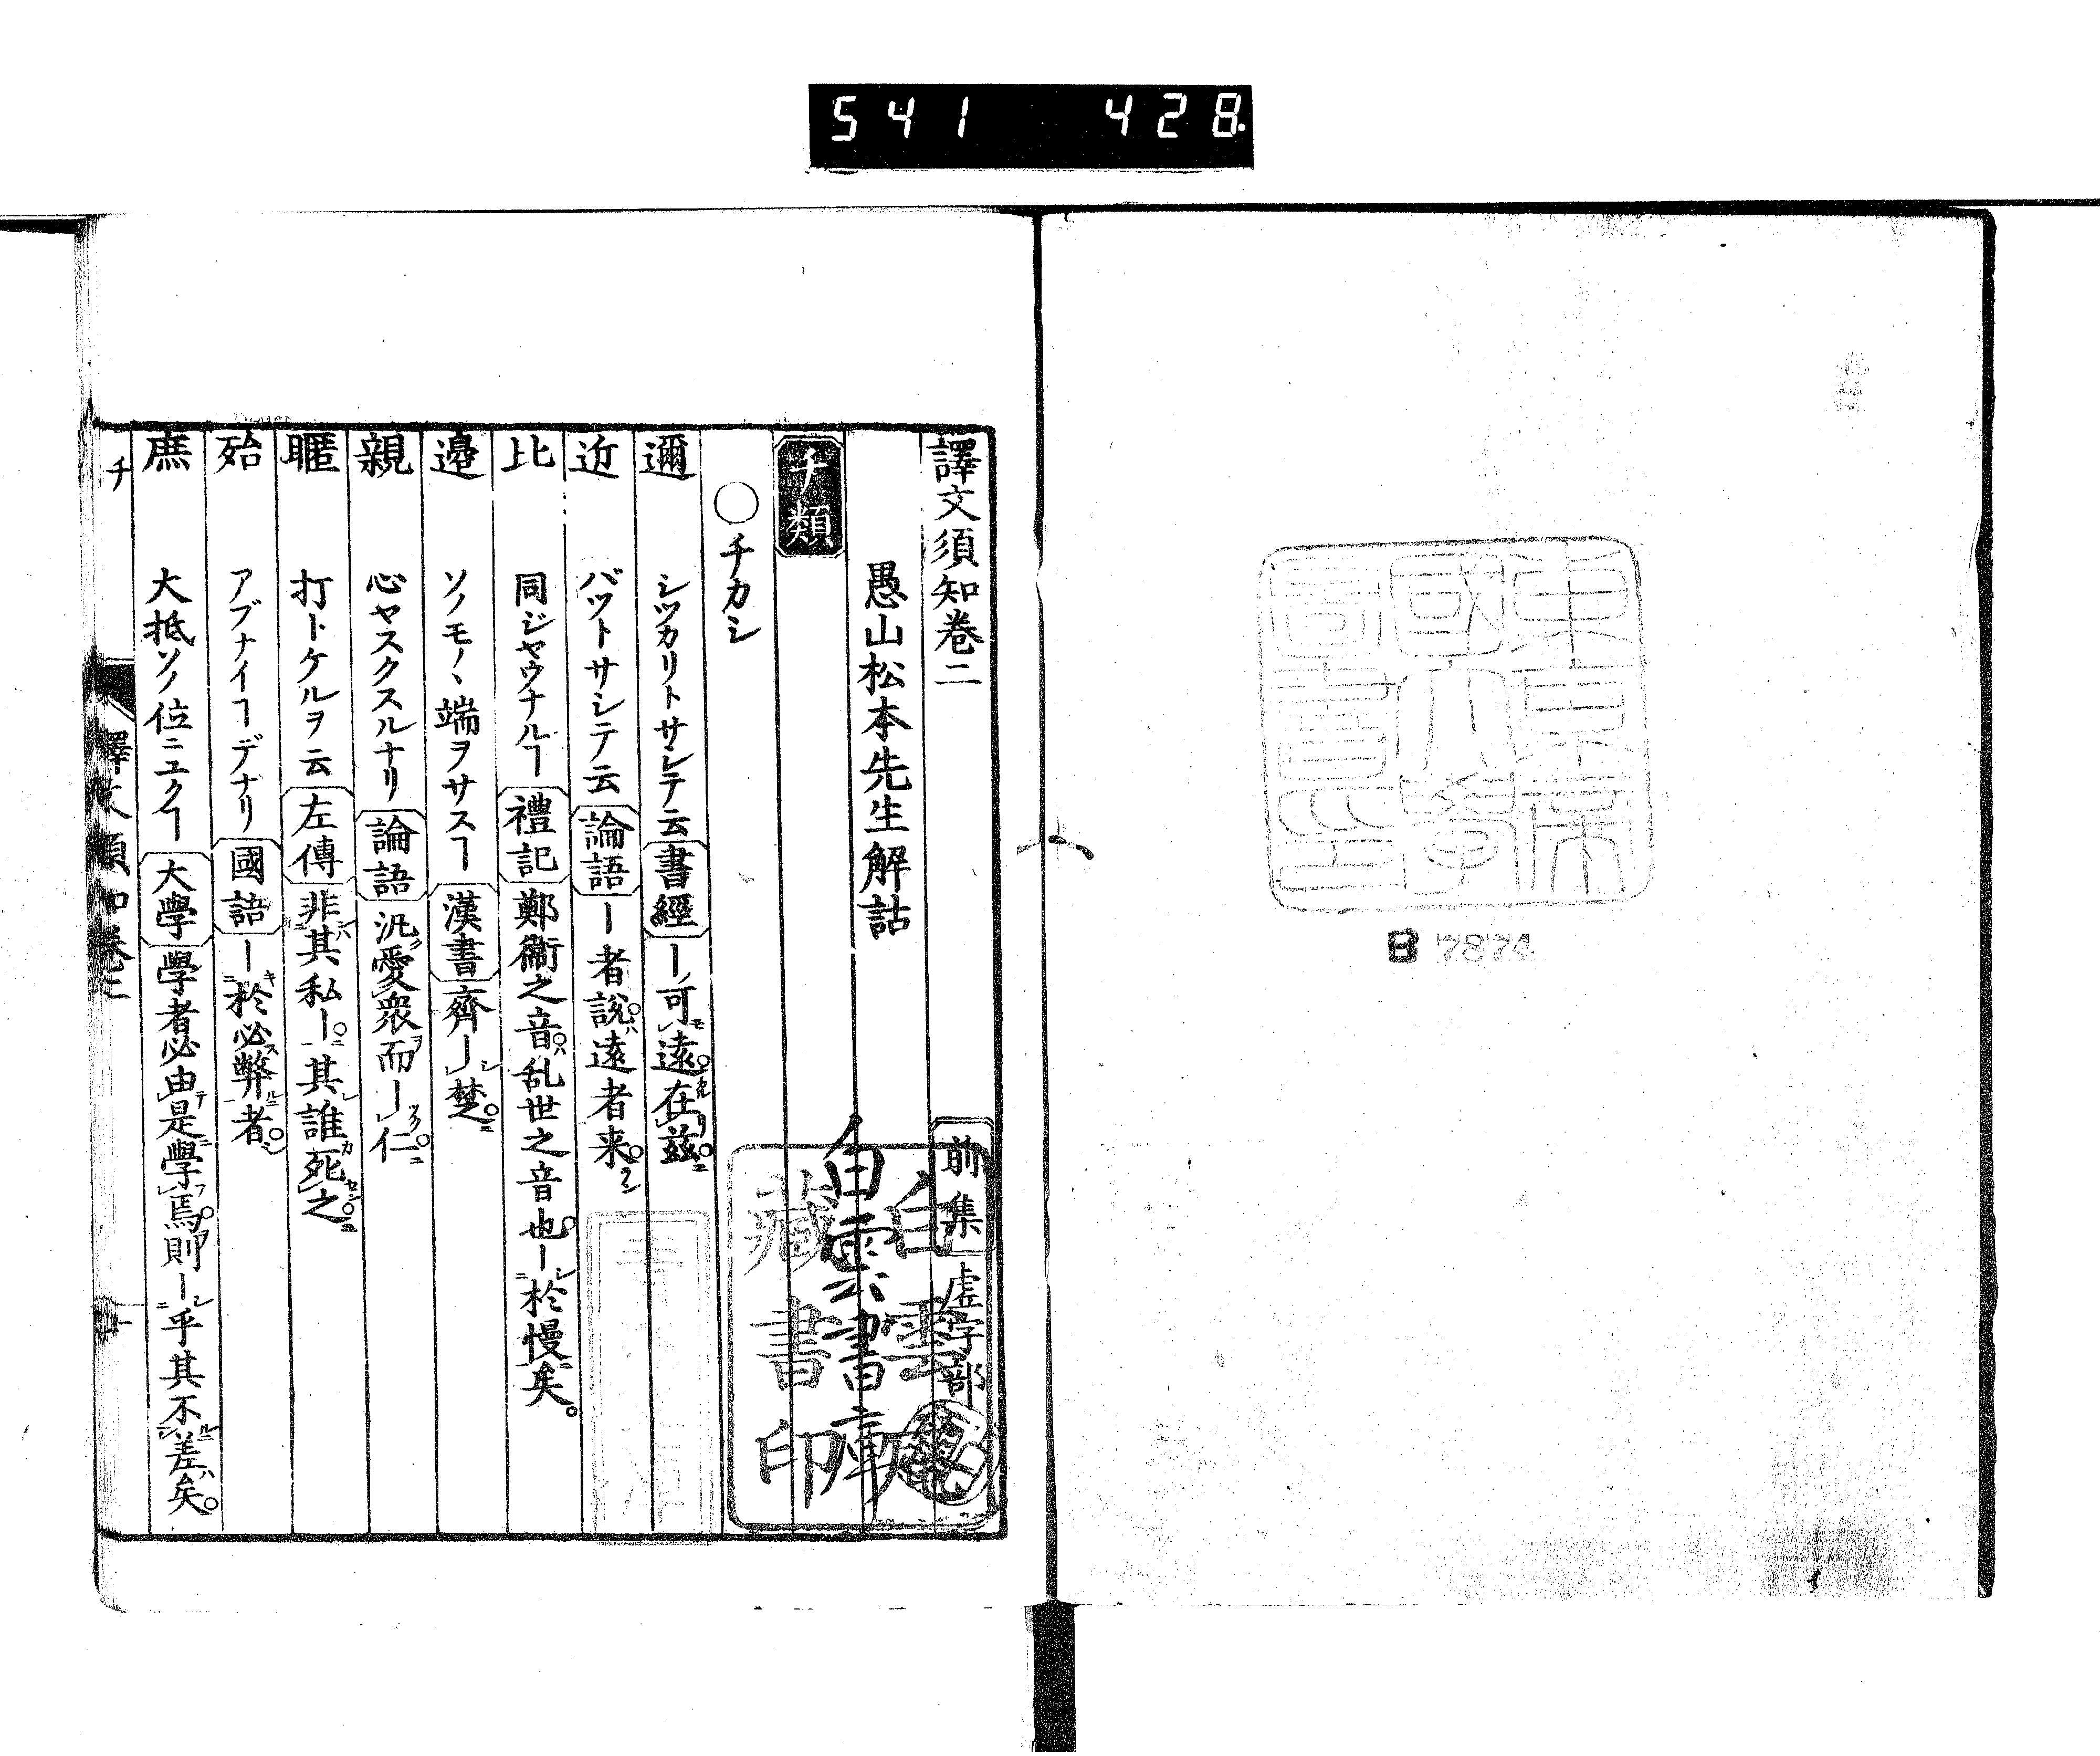 541 428
東京
帝國大學
圖書印
B 7874
譯文須知卷二 前集 虚字部
愚山松本先生解詁
白雲書庫
藏書印
チ類
○チカシ
邇 シツカリトサシテ云 書經 ー可遠在玆
近 バツトサシテ云 論語 ー者説遠者来
比 同ジヤウナルヿ 禮記 鄭衞之音乱世之音也ー於慢矣
邉 ソノモノヽ端ヲサスヿ 漢書 齊ー楚
親 心ヤスクスルナリ 論語 汎愛衆而ー仁
暱 打トケルヲ云 左傳 非其私ー其誰死之
殆 アブナイヿデナリ 國語 ー於必弊者
庶 大抵ソノ位ニユクヿ 大學 學者必由是學焉則ー乎其不差矣
チ 譯文須知卷二